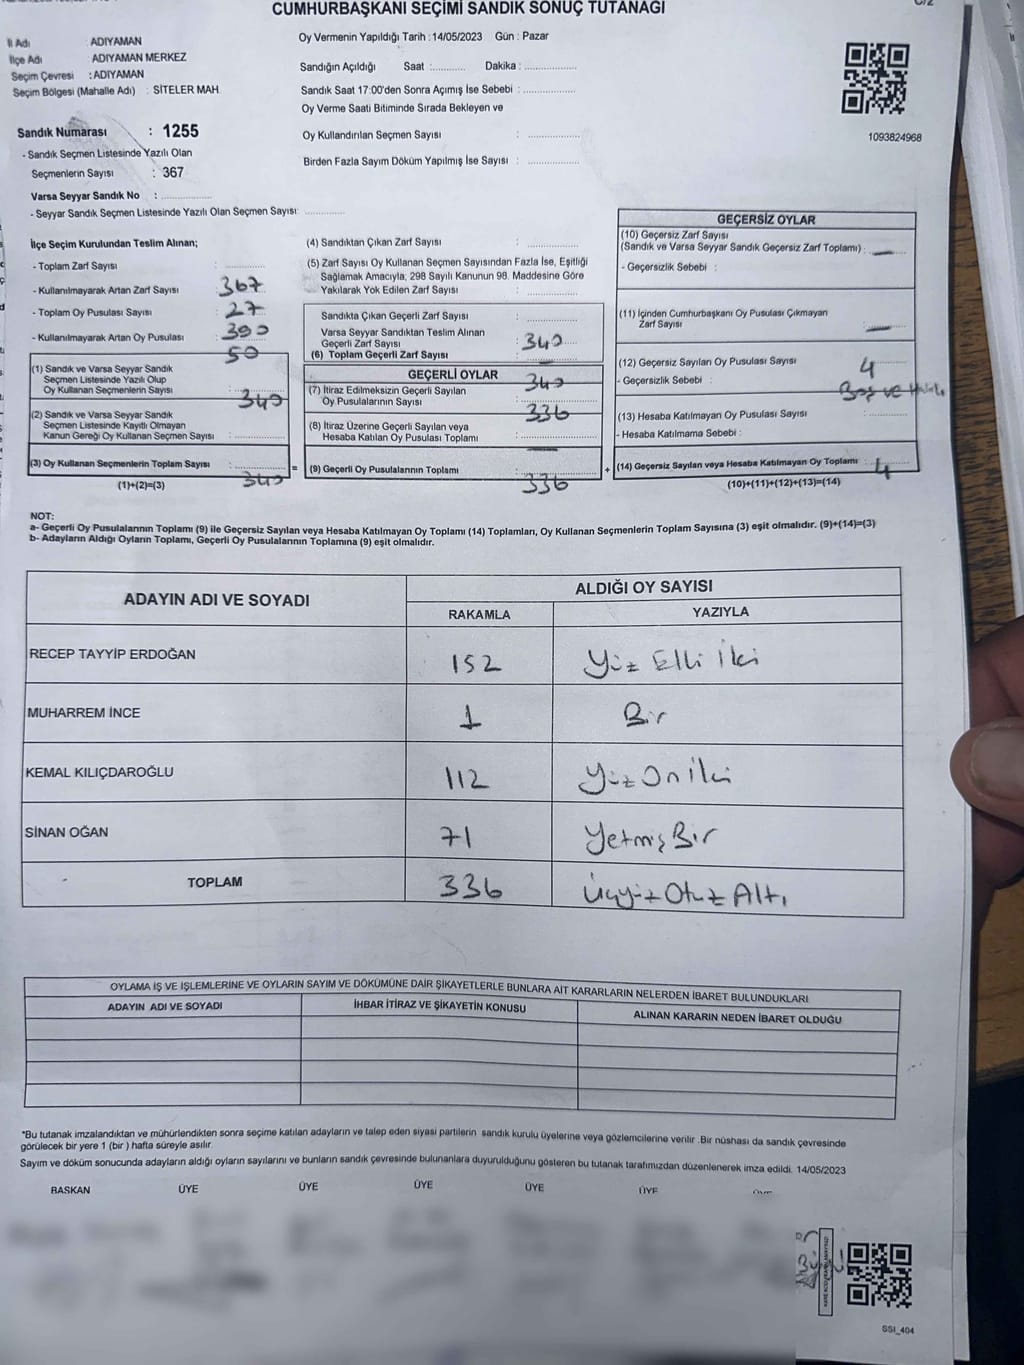 CUMHURBAŞKANI SEÇİMİ SANDIK SONUÇ TUTANAĞI
İl Adı : ADIYAMAN
İlçe Adı : ADIYAMAN MERKEZ
Seçim Çevresi : ADIYAMAN
Seçim Bölgesi (Mahalle Adı) : SİTELER MAH.
Oy Vermenin Yapıldığı Tarih : 14/05/2023 Gün : Pazar
Sandığın Açıldığı Saat :........... Dakika : ................
Sandık Saat 17:00'den Sonra Açımış İse Sebebi : ................
Oy Verme Saati Bitiminde Sırada Bekleyen ve
Oy Kullandırılan Seçmen Sayısı : ................
Birden Fazla Sayım Döküm Yapılmış İse Sayısı : ................
1093824968
Sandık Numarası : 1255
- Sandık Seçmen Listesinde Yazılı Olan
Seçmenlerin Sayısı : 367
Varsa Seyyar Sandık No : ................
- Seyyar Sandık Seçmen Listesinde Yazılı Olan Seçmen Sayısı: ............
İlçe Seçim Kurulundan Teslim Alınan;
- Toplam Zarf Sayısı : 367
- Kullanılmayarak Artan Zarf Sayısı : 27
- Toplam Oy Pusulası Sayısı : 390
- Kullanılmayarak Artan Oy Pusulası : 50
(1) Sandık ve Varsa Seyyar Sandık
Seçmen Listesinde Yazılı Olup
Oy Kullanan Seçmenlerin Sayısı : 340
(2) Sandık ve Varsa Seyyar Sandık
Seçmen Listesinde Kayıtlı Olmayan
Kanun Gereği Oy Kullanan Seçmen Sayısı : ................
(3) Oy Kullanan Seçmenlerin Toplam Sayısı : 340
(1)+(2)=(3)
(4) Sandıktan Çıkan Zarf Sayısı : ................
(5) Zarf Sayısı Oy Kullanan Seçmen Sayısından Fazla İse, Eşitliği
Sağlamak Amacıyla, 298 Sayılı Kanunun 98. Maddesine Göre
Yakılarak Yok Edilen Zarf Sayısı : ................
Sandıkta Çıkan Geçerli Zarf Sayısı : 340
Varsa Seyyar Sandıktan Teslim Alınan
Geçerli Zarf Sayısı :
(6) Toplam Geçerli Zarf Sayısı : 340
GEÇERLİ OYLAR
(7) İtiraz Edilmeksizin Geçerli Sayılan
Oy Pusulalarının Sayısı : 336
(8) İtiraz Üzerine Geçerli Sayılan veya
Hesaba Katılan Oy Pusulası Toplamı : —
= (9) Geçerli Oy Pusulalarının Toplamı : 336
GEÇERSİZ OYLAR
(10) Geçersiz Zarf Sayısı
(Sandık ve Varsa Seyyar Sandık Geçersiz Zarf Toplamı) : —
- Geçersizlik Sebebi :
(11) İçinden Cumhurbaşkanı Oy Pusulası Çıkmayan
Zarf Sayısı : —
(12) Geçersiz Sayılan Oy Pusulası Sayısı : 4
- Geçersizlik Sebebi : Boş ve
(13) Hesaba Katılmayan Oy Pusulası Sayısı : ............
- Hesaba Katılmama Sebebi :
+ (14) Geçersiz Sayılan veya Hesaba Katılmayan Oy Toplamı : 4
(10)+(11)+(12)+(13)=(14)
NOT:
a- Geçerli Oy Pusulalarının Toplamı (9) ile Geçersiz Sayılan veya Hesaba Katılmayan Oy Toplamı (14) Toplamları, Oy Kullanan Seçmenlerin Toplam Sayısına (3) eşit olmalıdır. (9)+(14)=(3)
b- Adayların Aldığı Oyların Toplamı, Geçerli Oy Pusulalarının Toplamına (9) eşit olmalıdır.
ADAYIN ADI VE SOYADI ALDIĞI OY SAYISI
RAKAMLA YAZIYLA
RECEP TAYYİP ERDOĞAN 152 Yüz Elli İki
MUHARREM İNCE 1 Bir
KEMAL KILIÇDAROĞLU 112 Yüz On İki
SİNAN OĞAN 71 Yetmiş Bir
TOPLAM 336 Üçyüz Otuz Altı
OYLAMA İŞ VE İŞLEMLERİNE VE OYLARIN SAYIM VE DÖKÜMÜNE DAİR ŞİKAYETLERLE BUNLARA AİT KARARLARIN NELERDEN İBARET BULUNDUKLARI
ADAYIN ADI VE SOYADI İHBAR İTİRAZ VE ŞİKAYETİN KONUSU ALINAN KARARIN NEDEN İBARET OLDUĞU
*Bu tutanak imzalandıktan ve mühürlendikten sonra seçime katılan adayların ve talep eden siyasi partilerin sandık kurulu üyelerine veya gözlemcilerine verilir .Bir nüshası da sandık çevresinde
görülecek bir yere 1 (bir ) hafta süreyle asılır.
Sayım ve döküm sonucunda adayların aldığı oyların sayılarını ve bunların sandık çevresinde bulunanlara duyurulduğunu gösteren bu tutanak tarafımızdan düzenlenerek imza edildi. 14/05/2023
BAŞKAN ÜYE ÜYE ÜYE ÜYE ÜYE
SSI_404